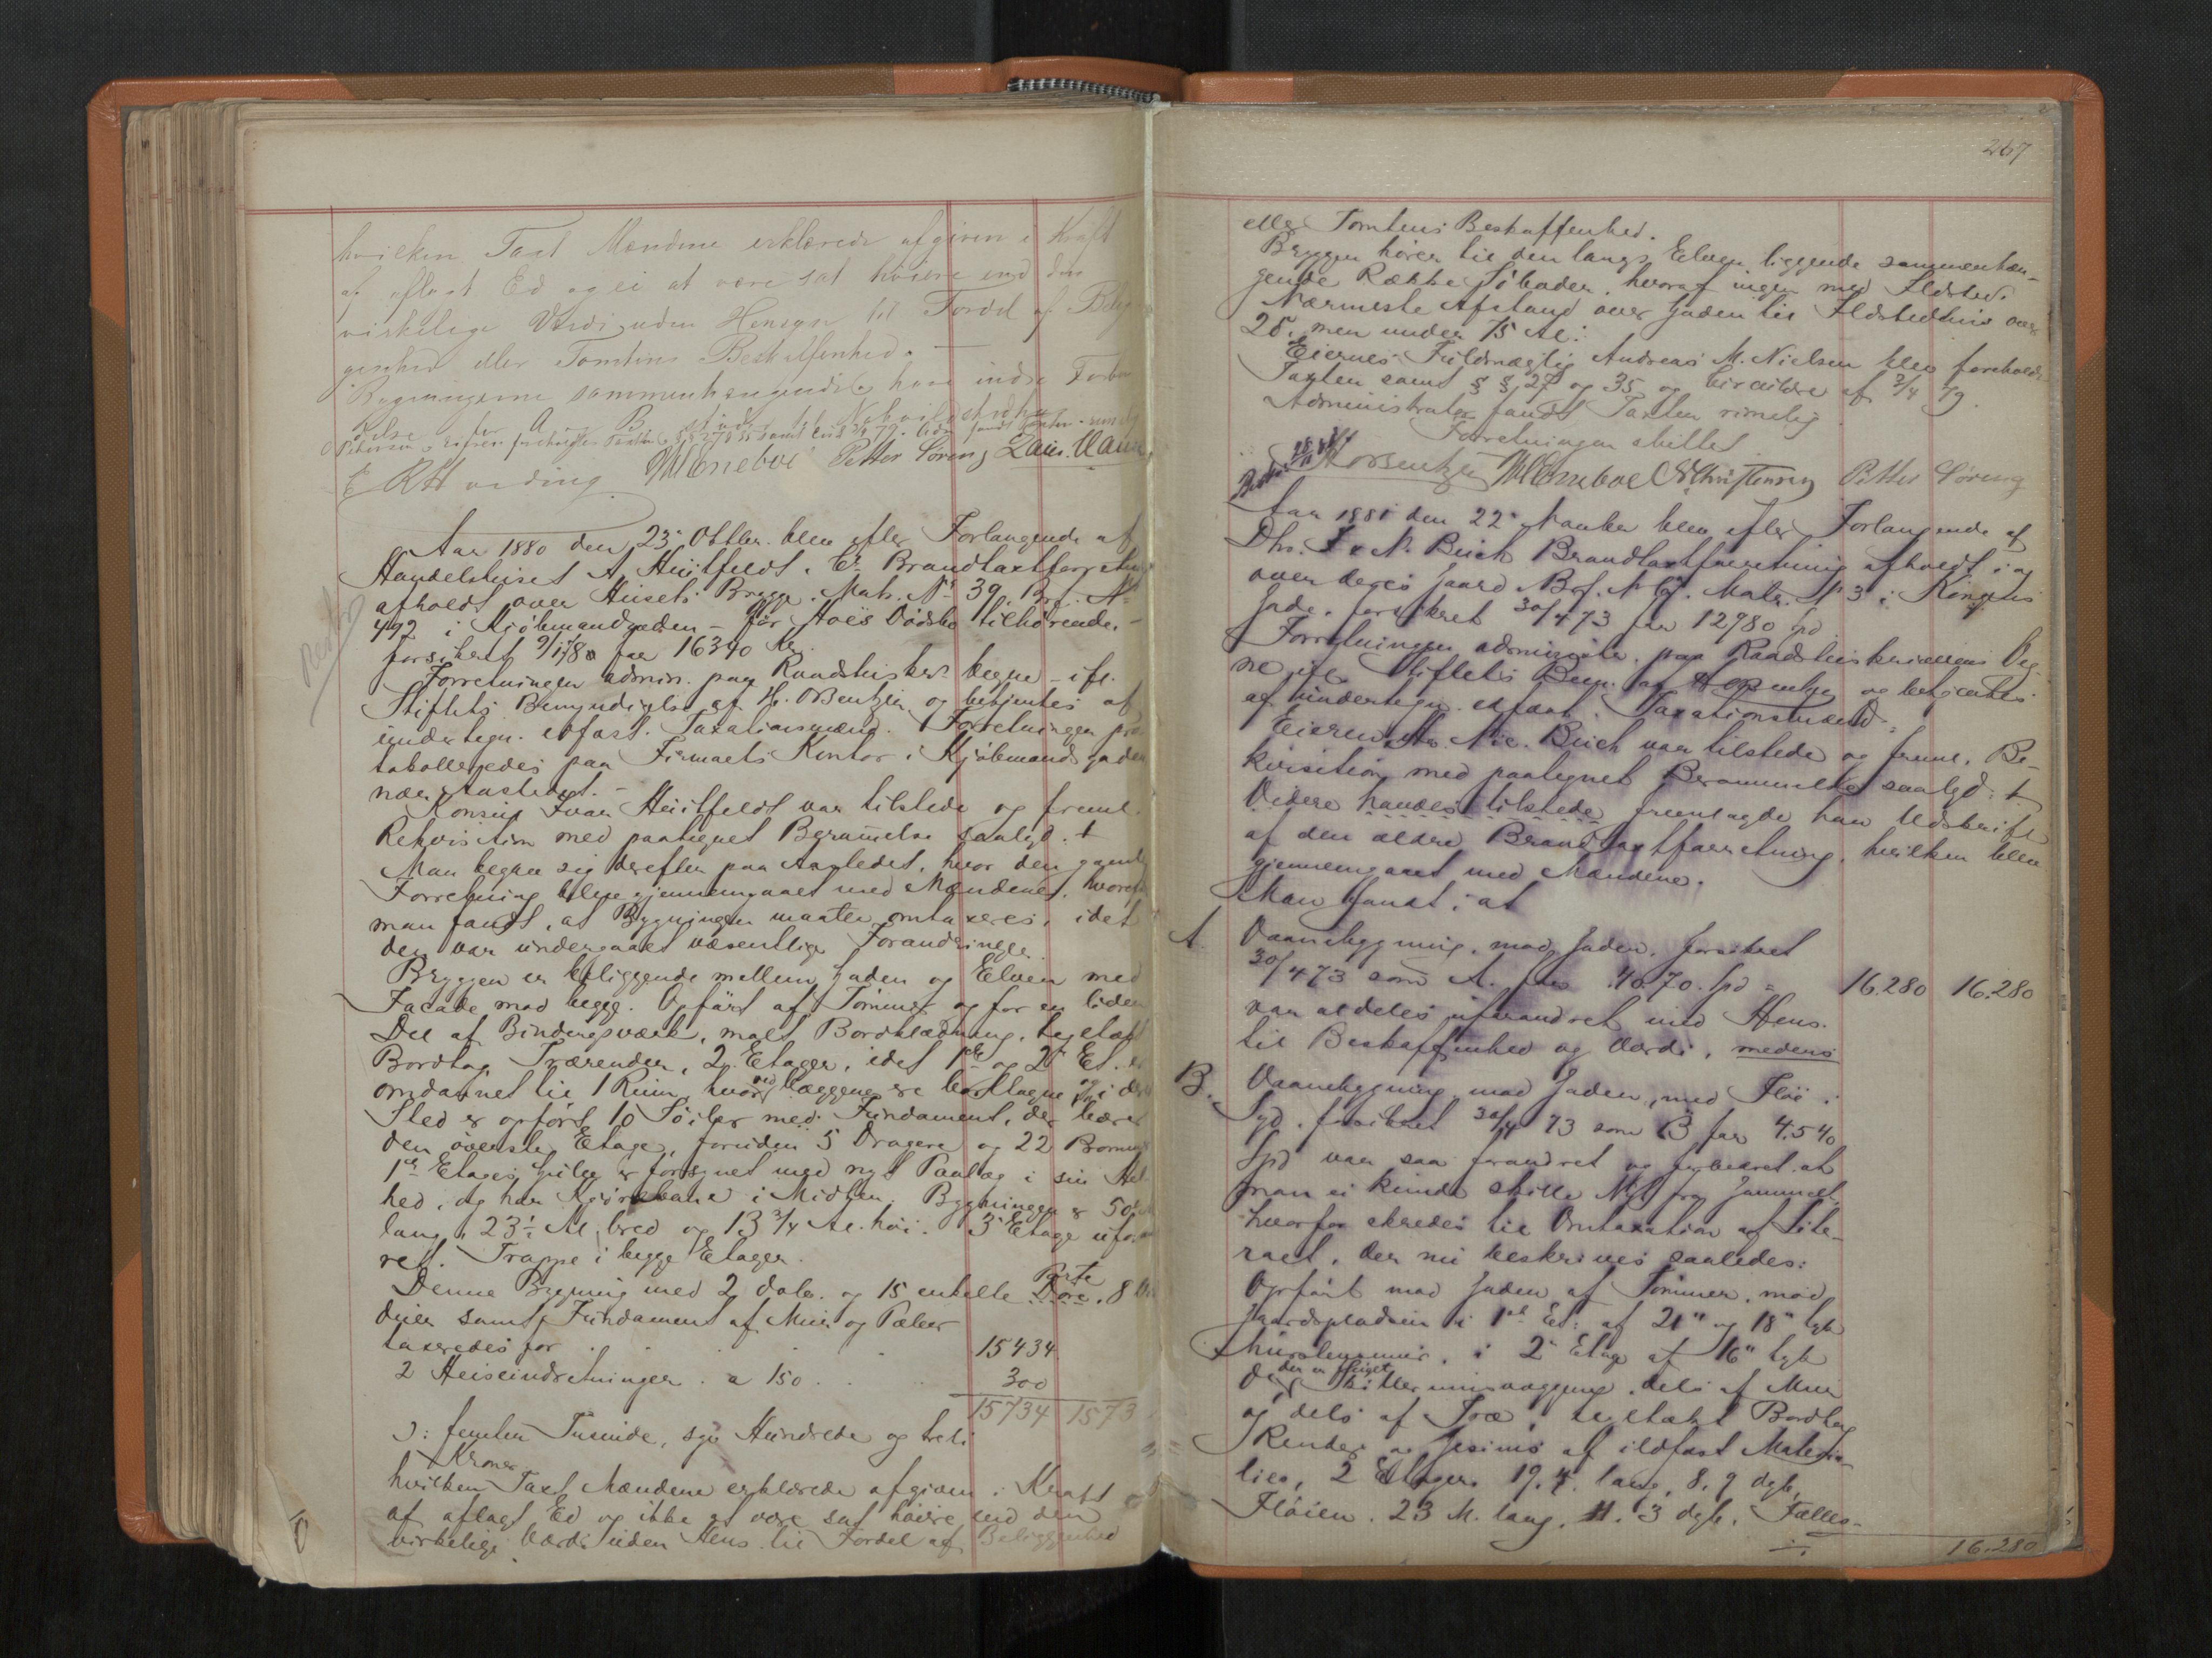 hvilken Taxt Mændene erklærede afgiven i Kraft
af aflagt Ed og ei at være sat høiere end den
virkelige Værdi uden Hensyn til Fordel af Belig
genhed eller Tomtens Beskaffenhed.
Bygningerne sammenhængende have indre Forbin
delse
Petter Søreng
Aar 1880 den 23. Oktbr. blev efter Forlangende af
Handelshuset A. Huitfeldt & Co Brandtaxtforretn
afholdt over Husets Brygge. Matr. No 39. Brf. No
492 i Kjøbmandgaden - før Høes Dødsbo tilhørende. -
forsikret for 16340 Kr.
Forretningen admin. paa Raadstuskr. vegne - ifl.
Stiftets Bemyndigelse af H. Bentzen og betjentes af
undertegn. edfast. Taxationsmænd. Forretningen pro
tokolleredes paa Firmaets Kontor i Kjøbmandsgaden
nær Aastedet. -
Konsul Ivar Huitfeldt var tilstede og freml.
Rekvisition med paategnet Berammelse saalyd. +
Man begav sig derefter paa Aastedet, hvor den gamle
Forretning blev gjennemgaaet med Mændene, hvoref
man fandt, at Bygningen maatte omtaxeres, idet
den var undergaaet væsentlige Forandringer.
Bryggen er beliggende mellem Gaden og Elven med
Facade mod begge. Opført af Tømmer og for en liden
Del af Bindingsværk, malt Bordklædning, teglstækt
Bordtag, Trærender, 2 Etager, idet 1ste og 2den Et. er
omdannet til 1 Rum, hvorved Væggene ere borttagne og i deres
Sted er opført 10 Søiler med Fundament, der bærer
den øverste Etage, foruden 5 Dragere og 22
1ste Etages Gulv er forsynet med nyt Paalæg i sin Hel
hed, og har Kjørebane i Midten. Bygningen er 50
lang, 23½ Al. bred og 13¾ Al. høi. 3 Etage ufo
ret. Trappe i begge Etager.
Denne Bygning med 2 dob. og 15 enkelte Porte Døre, 8 Vin
duer samt Fundament af Mur og Pæler
taxeredes for . . . . 15434
2 Heiseindretninger . a 150 . . 300
15734 1573
ɔ: femten Tusinde, syv Hundrede og treti
Kroner
hvilken Taxt Mændene erklærede afgiven i Kraft
af aflagt Ed og ikke at være sat høiere end den
virkelige Værdi uden Hens. til Fordel af Beliggenhed
267
eller Tomtens Beskaffenhed.
Bryggen hører til den langs Elven liggende sammenhæn-
gende Række Søboder, hvoraf ingen med Ildsted.
Nærmeste Afstand over Gaden til Ildstedhus over
25, men under 75 Al:
Eiernes Fuldmægtig Andreas M. Nielsen blev foreholdt
Taxten samt §§ 27 og 35 og Circulære af 2/4 79.
Administrator fandt Taxten rimelig
Forretningen sluttet
Christensen Petter Søreng
Aar 1881 den 22. blev efter Forlangende af
Dhr. F. & N. Buch Brandtaxtforretning afholdt i og
over deres Gaard Brf. N 67. Matr. N 3 i Kongens
Gade, forsikret 30/4 73 for 12980 Spd
Forretningen administr. paa Raadstuskriverens Veg-
ne ifl. Stiftets Bem. og betjentes
af undertegn. edfæst. Taxationsmænd.
Eieren Hr. Nic. Buch var tilstede og freml. Re-
kvisition med paategnet Berammelse saalyd: +
Videre havdes tilstede fremlagde han Udskrift
af den ældre Brandtaxtforretning, hvilken blev
gjennemgaaet med Mændene.
Man fandt, at
A. Vaaningsbygning mod Gaden, forsikret
30/4 73 som A. for 4070 Spd = 16.280 16.280
var aldeles uforandret med Hens.
til Beskaffenhed og Værdi, medens
B. Vaaningsbygning mod Gaden, med Fløi i
Syd, forsikret 30/4 73 som B for 4.540
Spd var saa forandret og forbedret at
man ei kunde skille Nyt fra Gammelt,
hvorfor skredes til Omtaxation af Lite-
raet, der nu beskrives saaledes:
Opført mod Gaden af Tømmer, mod
Gaardspladsen i 1ste Et: af 21" og 18" tyk
i 2. Etage af 16" tyk
dels af Mur
og dels af Træ, teglstækt Bordtag
Render og Gesims af ildfast Materia-
lier, 2 Etager. 19,4 lang, 8,9 dyb,
Fløien 23 M. lang, 3 dyb. Fælles-
./. 16.280